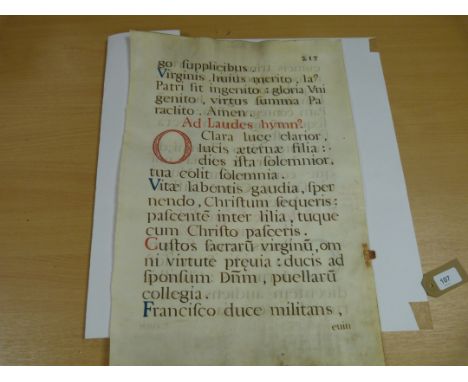 217
go supplicibus.
Virginis huius merito, la?
Patri sit ingenito: gloria Vni
genito, virtus summa Pa
raclito. Amen.
Ad Laudes hymn?
O Clara luce clarior,
lucis æternæ filia:
dies ista solemnior,
tua colit solemnia.
Vitæ labentis gaudia, sper
nendo, Christum sequeris:
pascentē inter lilia, tuque
cum Christo pasceris.
Custos sacrarū virginū, om
ni virtute pręuia: ducis ad
sponsum Dñm, puellarū
collegia.
Francisco duce militans,
euin
107